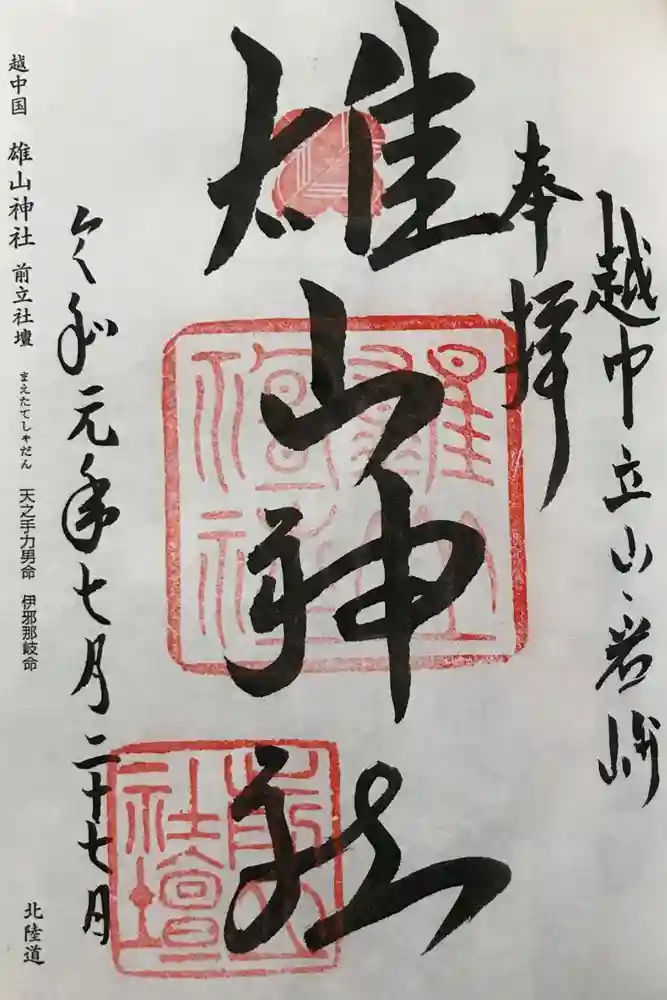 越中立山、岩峅
奉拝
雄山神社
雄山神社
前立社壇
令和元年七月二十七日
越中国 雄山神社 前立社壇 まえたてしゃだん 天之手力男命 伊邪那岐命
北陸道